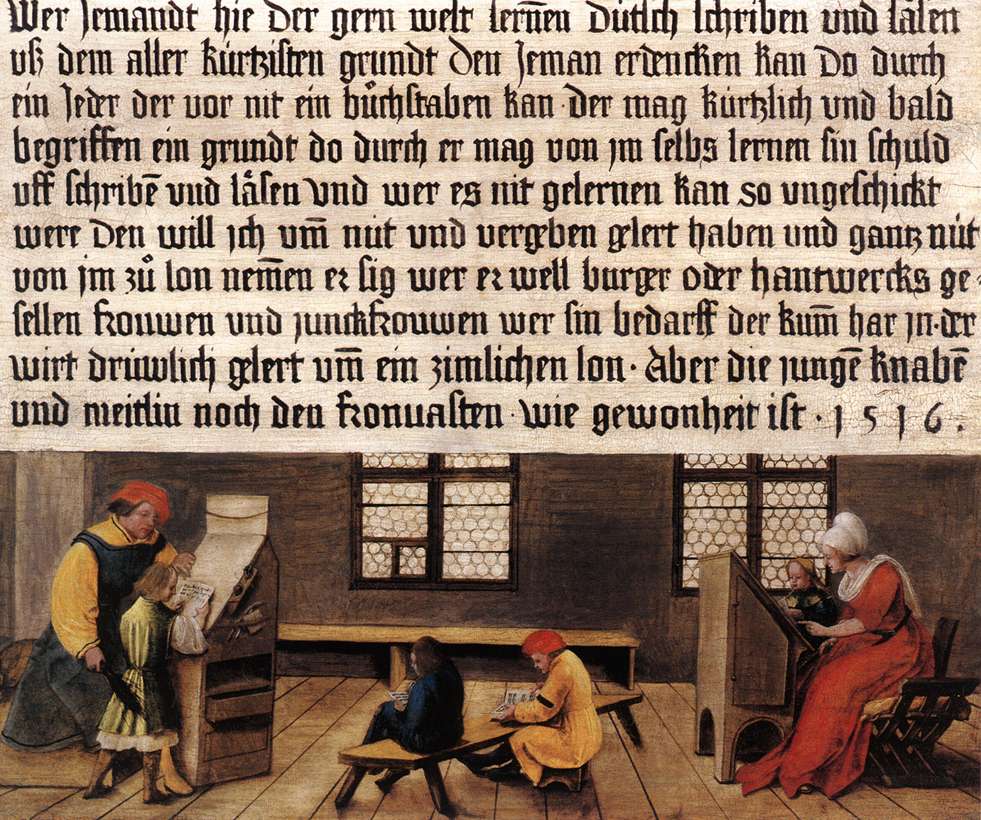 Wer Jemandt hie der gern welt lernen dütsch schriben und läsen
uß dem aller kürtzisten grundt den Jeman erdencken kan do durch
ein Jeder der vor nit ein bůchstaben kan · der mag kürtzlich und bald
begriffen ein grundt do durch er mag von jm selbs lernen sin schuld
uff schribē vnd läsen vnd wer es nit gelernen kan so ungeschickt
were den will jch vm̄ nüt und vergeben gelert haben und gantz nüt
von jm zů lon nem̄en er sig wer er well burger oder hantwercks ge-
sellen frouwen und junckfrouwen wer sin bedarff der kum̄ har jn · der
wirt drüwlich gelert vm̄ ein zimlichen lon · Aber die jungē knabē
und meitlin noch den fronuasten · wie gewonheit ist · 1 5 1 6 .